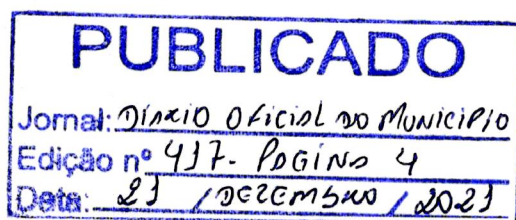 PUBLICADO
Jornal: DIÁRIO OFICIAL DO MUNICÍPIO
Edição nº 417 - PÁGINA 4
Data: 21 / DEZEMBRO / 2021